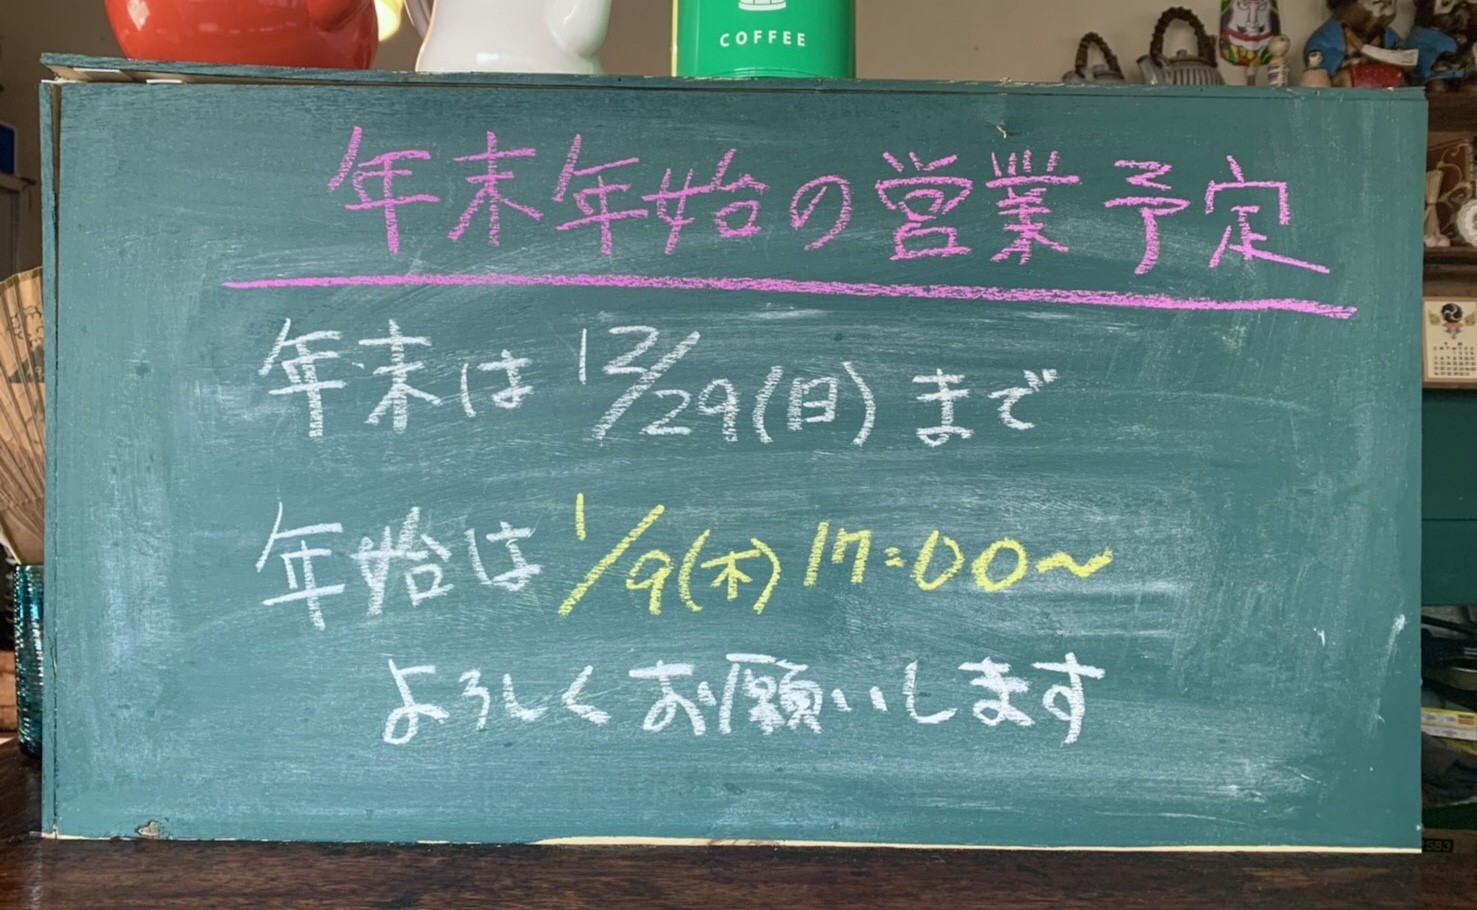 COFFEE
年末年始の営業予定
年末は12/29(日)まで
年始は1/9(木)17:00〜
よろしくお願いします